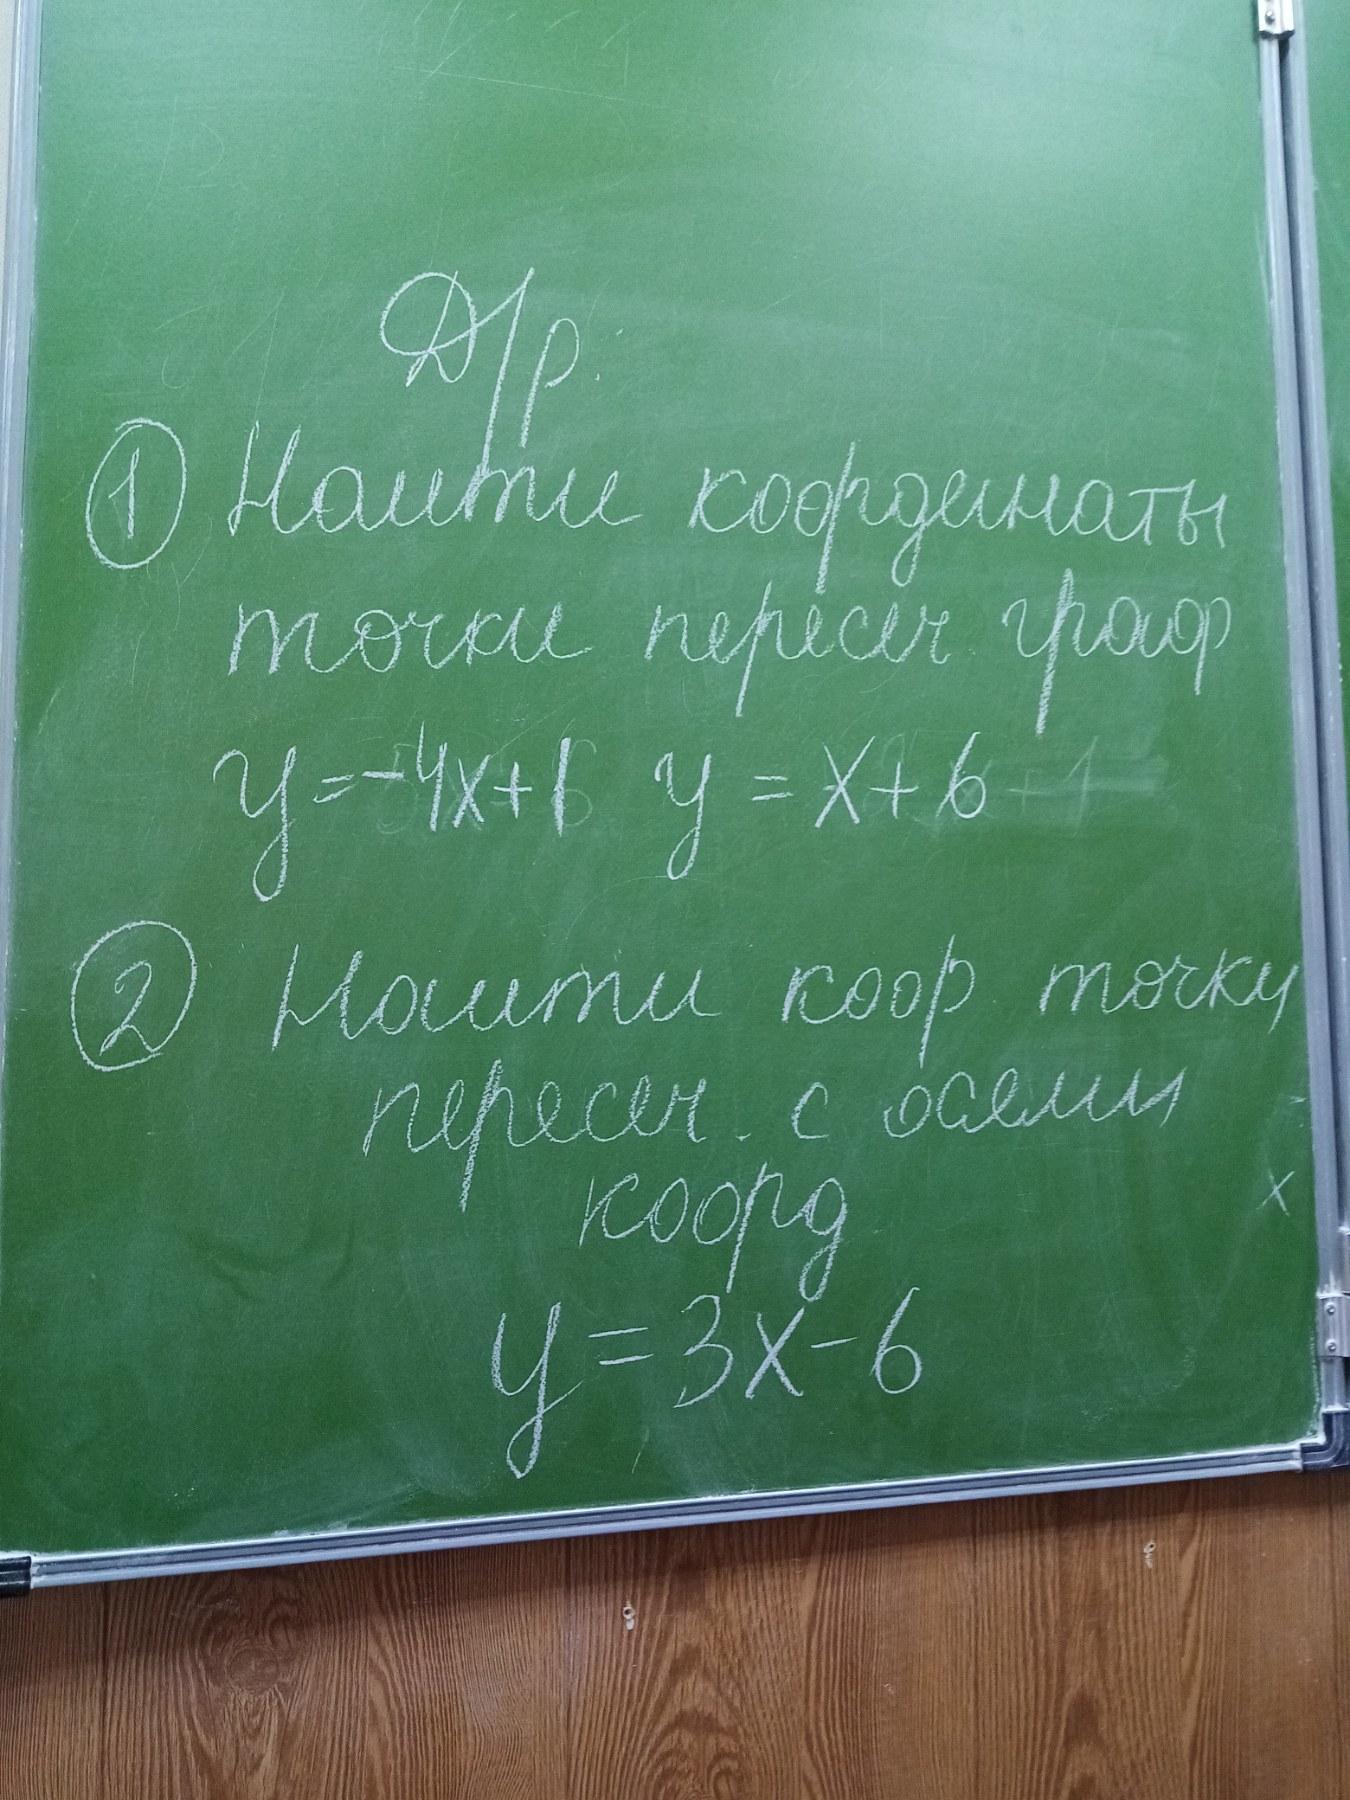 Д/р.
① Найти координаты
точки пересеч. граф
y=-4x+1 y = x+6
② Найти коор. точку
пересеч. с осями
коорд
y=3x-6
x